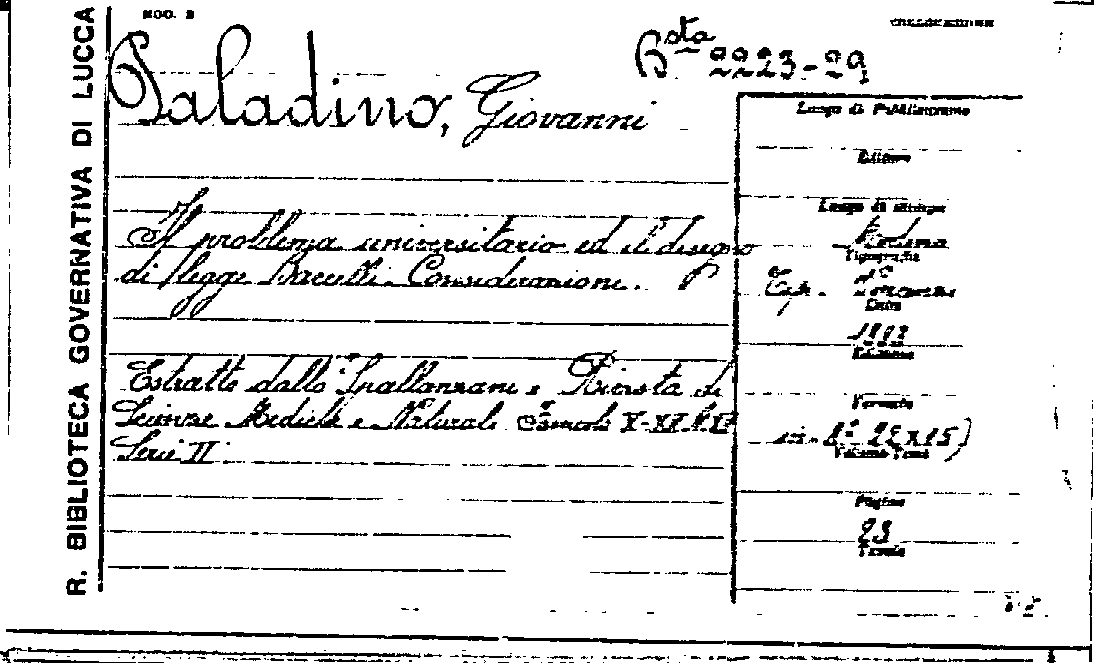 MOD. 2
COLLOCAZIONE
R. BIBLIOTECA GOVERNATIVA DI LUCCA
Bsta 2223-29
Paladino, Giovanni
Il problema universitario ed il disegno
di legge Baccelli. Considerazioni.
Estratto dallo "Spallanzani" Rivista di
Scienze Mediche e Naturali X-XI
Serie II
Luogo di Pubblicazione
Editore
Luogo di stampa
Modena
Tipografia
Tip.
Data
Edizione
Formato
in-8° 22x15)
Volume Tomi
Pagine
23
Tavole